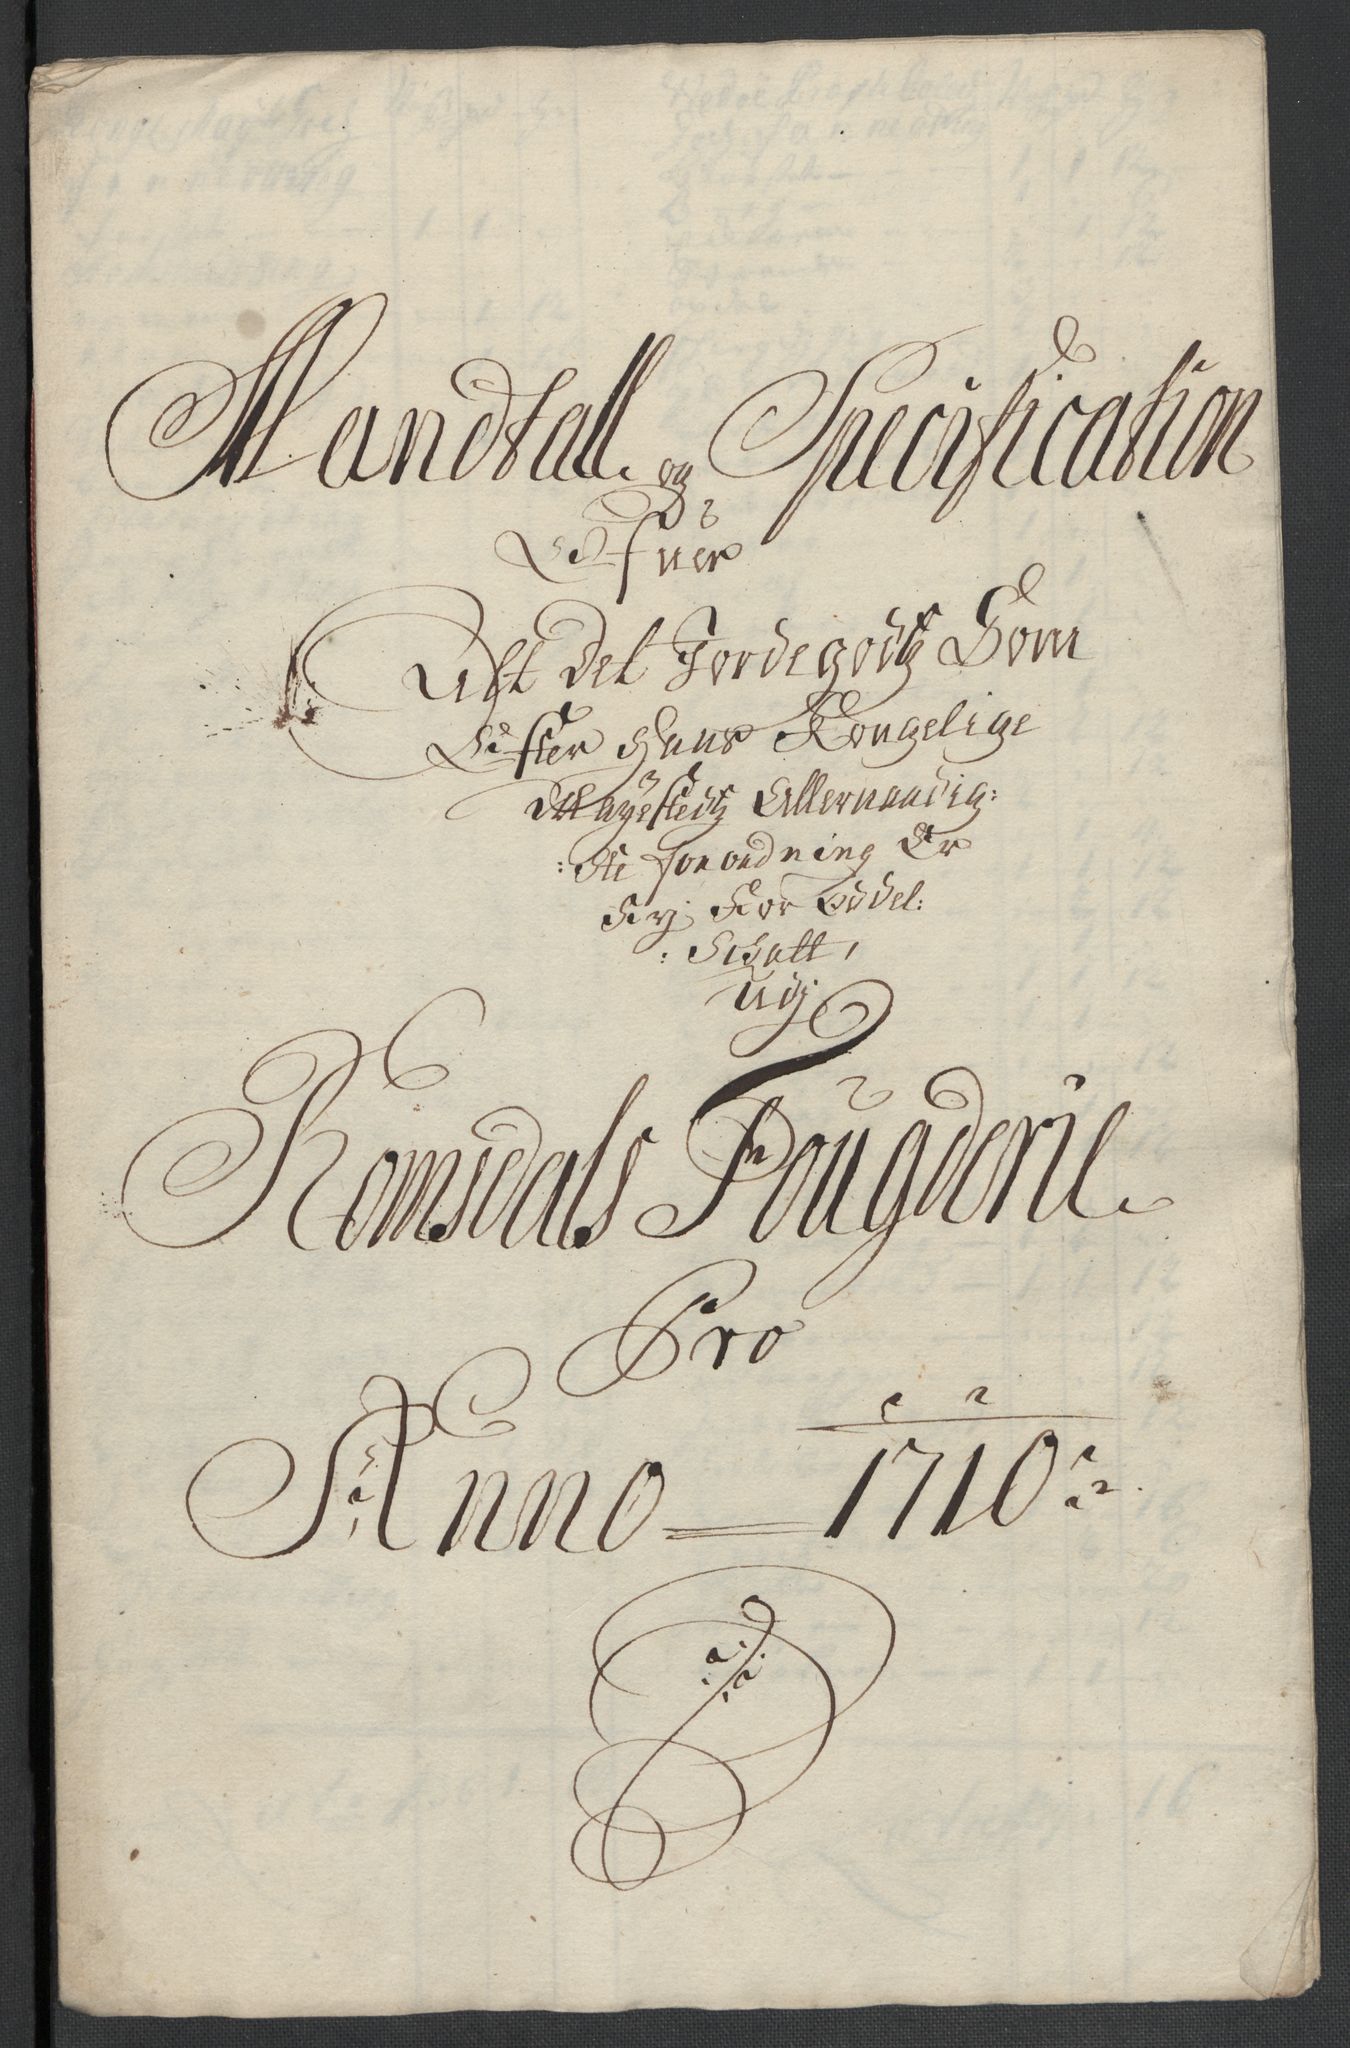 Mandtall og Specification
Ofuer
Alt det Jordegodtz Som
Efter Hans Kongelige
Mayestedtz Allernaadig:
:ste forordning Er
Frj for Oddel:
:Schatt,
Udj
Romsdals Fougderie
Pro
Anno 1710